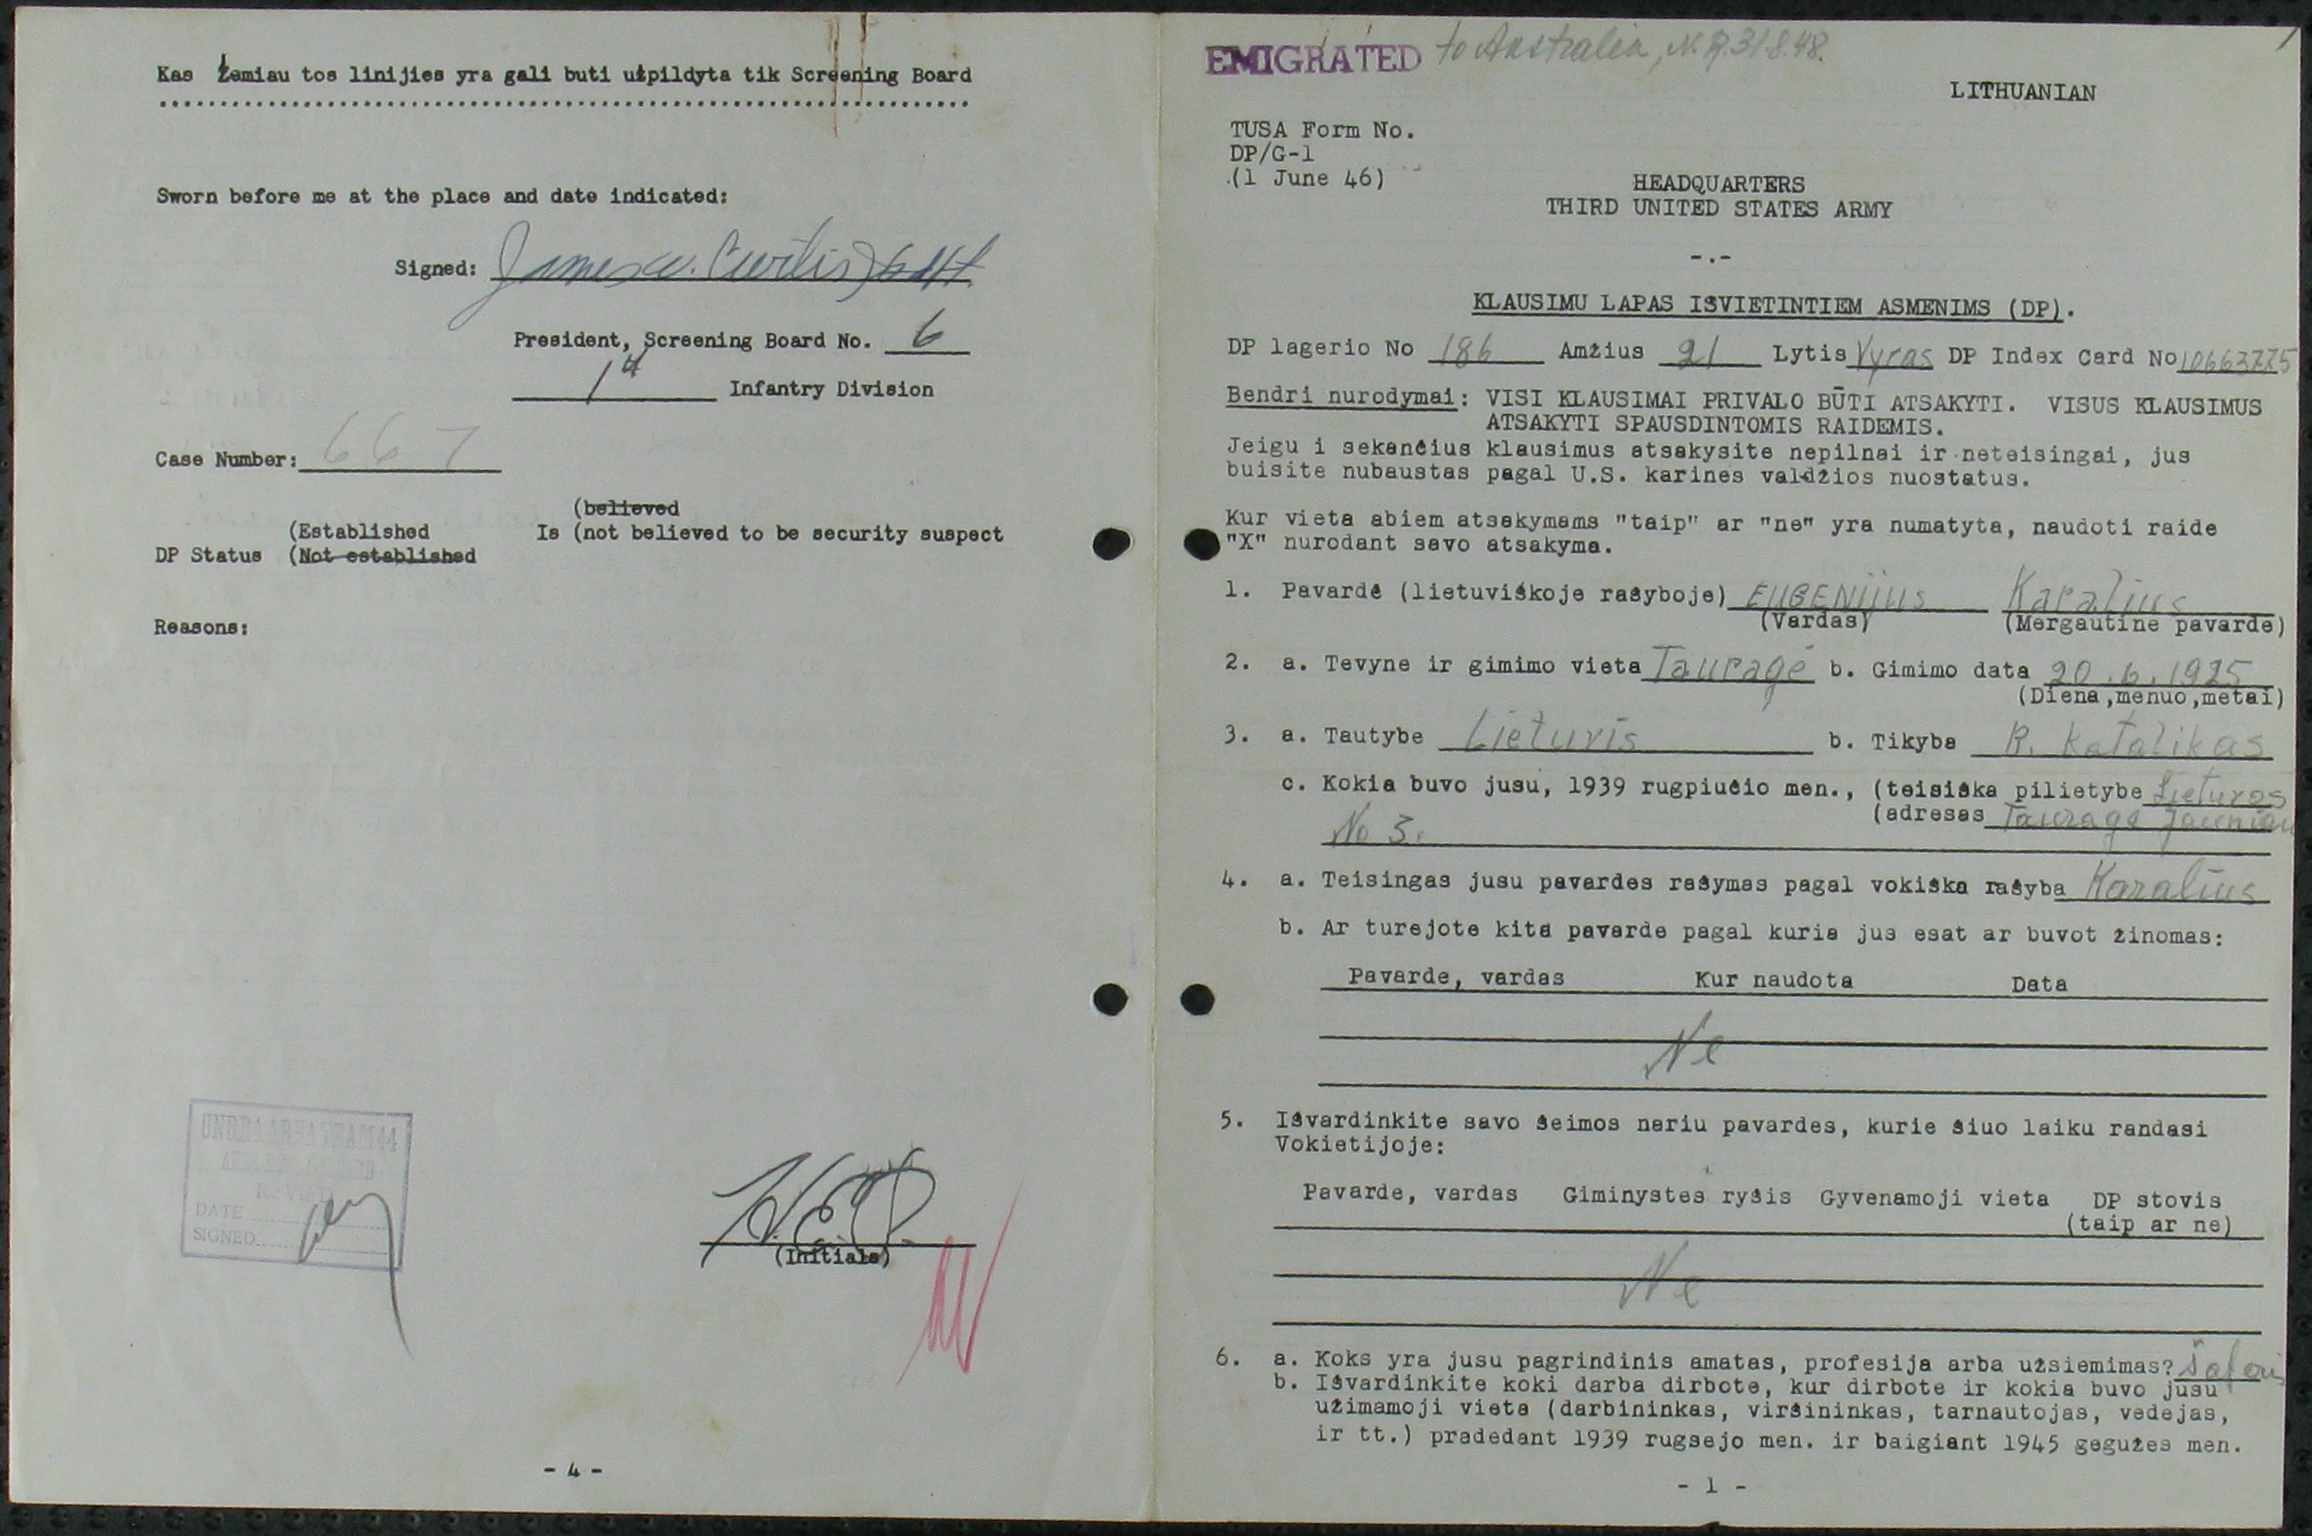 Kas žemiau tos linijies yra gali buti užpildyta tik Screening Board
Sworn before me at the place and date indicated:
Signed: James W. Curtis
President, Screening Board No. 6
1st Infantry Division
Case Number: 667
(believed
(Established Is (not believed to be security suspect
DP Status (Not established
Reasons:
DATE
SIGNED
H.E.P.
(Initials)
- 4 -
EMIGRATED to Australia, 31.8.48.
LITHUANIAN
TUSA Form No.
DP/G-1
(1 June 46)
HEADQUARTERS
THIRD UNITED STATES ARMY
-.-
KLAUSIMU LAPAS IŠVIETINTIEM ASMENIMS (DP).
DP lagerio No 186 Amžius 21 Lytis Vyras DP Index Card No 10663775
Bendri nurodymai: VISI KLAUSIMAI PRIVALO BŪTI ATSAKYTI. VISUS KLAUSIMUS
ATSAKYTI SPAUSDINTOMIS RAIDEMIS.
Jeigu i sekančius klausimus atsakysite nepilnai ir neteisingai, jus
buisite nubaustas pagal U.S. karines valdžios nuostatus.
Kur vieta abiem atsakymams "taip" ar "ne" yra numatyta, naudoti raide
"X" nurodant savo atsakyma.
1. Pavardė (lietuviškoje rašyboje) EUGENIJUS Karalius
(Vardas) (Mergautine pavarde)
2. a. Tevyne ir gimimo vieta Tauragė b. Gimimo data 20.6.1925
(Diena,menuo,metai)
3. a. Tautybe Lietuvis b. Tikyba R. Katalikas
c. Kokia buvo jusu, 1939 rugpiučio men., (teisiška pilietybe Lietuvos
(adresas Tauragė
No 3.
4. a. Teisingas jusu pavardes rašymas pagal vokiška rašyba Karalius
b. Ar turejote kita pavarde pagal kuria jus esat ar buvot žinomas:
Pavarde, vardas Kur naudota Data
Ne
5. Išvardinkite savo šeimos nariu pavardes, kurie šiuo laiku randasi
Vokietijoje:
Pavarde, vardas Giminystes ryšis Gyvenamoji vieta DP stovis
(taip ar ne)
Ne
6. a. Koks yra jusu pagrindinis amatas, profesija arba užsiemimas?
b. Išvardinkite koki darba dirbote, kur dirbote ir kokia buvo jusu
užimamoji vieta (darbininkas, viršininkas, tarnautojas, vedejas,
ir tt.) pradedant 1939 rugsejo men. ir baigiant 1945 gegužes men.
- 1 -